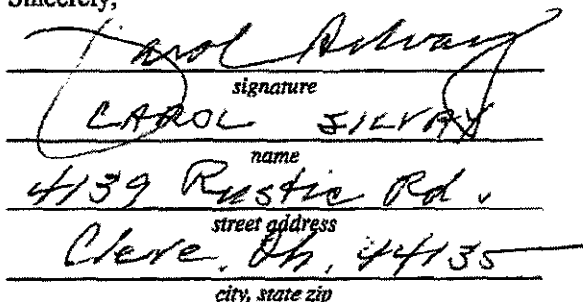 Sincerely,
Carol Silvay
signature
CAROL SILVAY
name
4139 Rustic Rd.
street address
Cleve. Oh, 44135
city, state zip